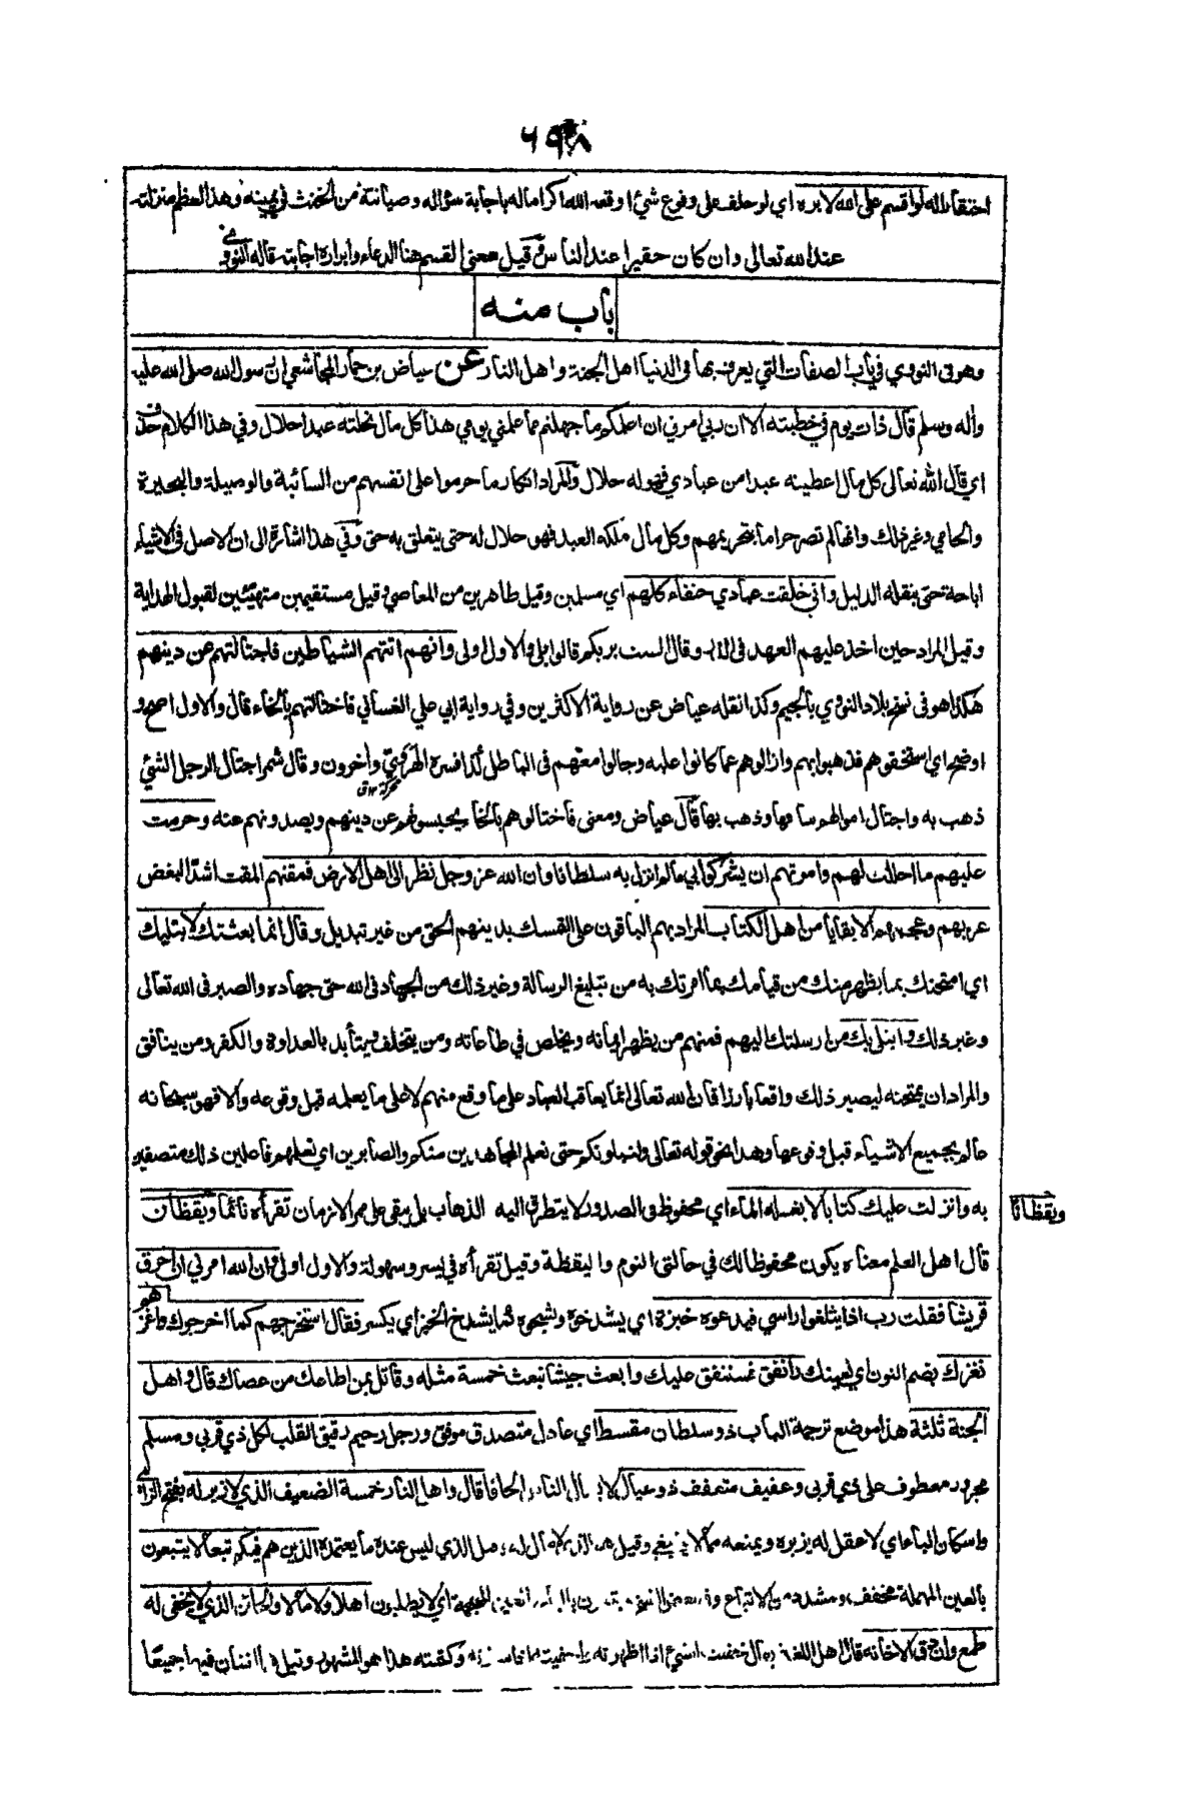 ٦٩٨
احتقارا له لو اقسم على الله لابره اي لو حلف على وقوع شيء اوقعه الله اكراما له باجابة سؤاله وصيانته من الحنث في يمينه وهذا لعظم منزلته
عند الله تعالى وان كان حقيرا عند الناس وقيل معنى القسم هنا الدعاء وابراره اجابته قاله النووي
باب منه
وهو في النووي في باب الصفات التي يعرف بها في الدنيا اهل الجنة واهل النار عن عياض بن حمار المجاشعي ان رسول الله صلى الله عليه
واله وسلم قال ذات يوم في خطبته الا ان ربي امرني ان اعلمكم ما جهلتم مما علمني يومي هذا كل مال نحلته عبدا حلال وفي هذا الكلام حذف
اي قال الله تعالى كل مال اعطيته عبدا من عبادي فهو له حلال والمراد انكار ما حرموا على انفسهم من السائبة والوصيلة والبحيرة
والحامي وغير ذلك وانها لم تصر حراما بتحريمهم وكل مال ملكه العبد فهو حلال له حتى يتعلق به حق وفي هذا اشارة الى ان الاصل في الاشياء
اباحة حتى ينقله الدليل واني خلقت عبادي حنفاء كلهم اي مسلمين وقيل طاهرين من المعاصي وقيل مستقيمين متهيئين لقبول الهداية
وقيل المراد حين اخذ عليهم العهد في الذر وقال الست بربكم قالوا بلى والاول اولى وانهم اتتهم الشياطين فاجتالتهم عن دينهم
هكذا هو في نسخ بلاد النووي بالجيم وكذا نقله عياض عن رواية الاكثرين وفي رواية ابي علي الغساني فاختالتهم بالخاء قال والاول اصح و
اوضح اي استخفوهم فذهبوا بهم وازالوهم عما كانوا عليه وجالوا معهم في الباطل كذا فسره الهروي واخرون وقال شمر اجتال الرجل الشئ
ذهب به واجتال اموالهم ساقها وذهب بها قال عياض ومعنى فاختالوهم بالخاء يحبسونهم عن دينهم ويصدونهم عنه وحرمت
عليهم ما احللت لهم وامرتهم ان يشركوا بي ما لم انزل به سلطانا وان الله عز وجل نظر الى اهل الارض فمقتهم المقت اشد البغض
عربهم وعجمهم الا بقايا من اهل الكتاب المراد بهم الباقون على التمسك بدينهم الحق من غير تبديل وقال انما بعثتك لابتليك
اي امتحنك بما يظهر منك من قيامك بما امرتك به من تبليغ الرسالة وغير ذلك من الجهاد في الله حق جهاده والصبر في الله تعالى
وغير ذلك وابتلي بك من ارسلتك اليهم فمنهم من يظهر ايمانه ويخلص في طاعاته ومن يتخلف ويتأبد بالعداوة والكفر ومن ينافق
والمراد ان يمتحنه ليصير ذلك واقعا بارزا فان الله تعالى انما يعاقب العباد على ما وقع منهم لا على ما يعلمه قبل وقوعه والا فهو سبحانه
عالم بجميع الاشياء قبل وقوعها وهذا نحو قوله تعالى ولنبلونكم حتى نعلم المجاهدين منكم والصابرين اي نعلمهم فاعلين ذلك متصفين
به وانزلت عليك كتابا لا يغسله الماء اي محفوظ في الصدور لا يتطرق اليه الذهاب بل يبقى على مر الازمان تقرأه نائما ويقظان
ويقظانا
قال اهل العلم معناه يكون محفوظا لك في حالتي النوم واليقظة وقيل تقرأه في يسر وسهولة والاول اولى وان الله امرني ان احرق
قريشا فقلت رب اذا يثلغوا راسي فيدعوه خبزة اي يشدخوه ويشجوه كما يشدخ الخبز اي يكسر فقال استخرجهم كما اخرجوك واغز هو
نغزك بضم النون اي نعينك وانفق فسننفق عليك وابعث جيشا نبعث خمسة مثله وقاتل بمن اطاعك من عصاك قال واهل
الجنة ثلثة هذا موضع ترجمة الباب ذو سلطان مقسط اي عادل متصدق موفق ورجل رحيم رقيق القلب لكل ذي قربى ومسلم
مجرور معطوف على ذي قربى وعفيف متعفف ذو عيال قال واهل النار خمسة الضعيف الذي لا زبر له بفتح الزاء
واسكان الباء اي لا عقل له يزبره ويمنعه مما لا ينبغي وقيل الذي ليس عنده ما يعتمده الذين هم فيكم تبعا لا يتبعون
بالعين المهملة مخفف ومشدد من الاتباع اي لا يطلبون اهلا ولا مالا والخائن الذي لا يخفى له
طمع وان دق الا خانه قال اهل اللغة وكتمته هذا هو المشهور وقيل فيهما جميعا